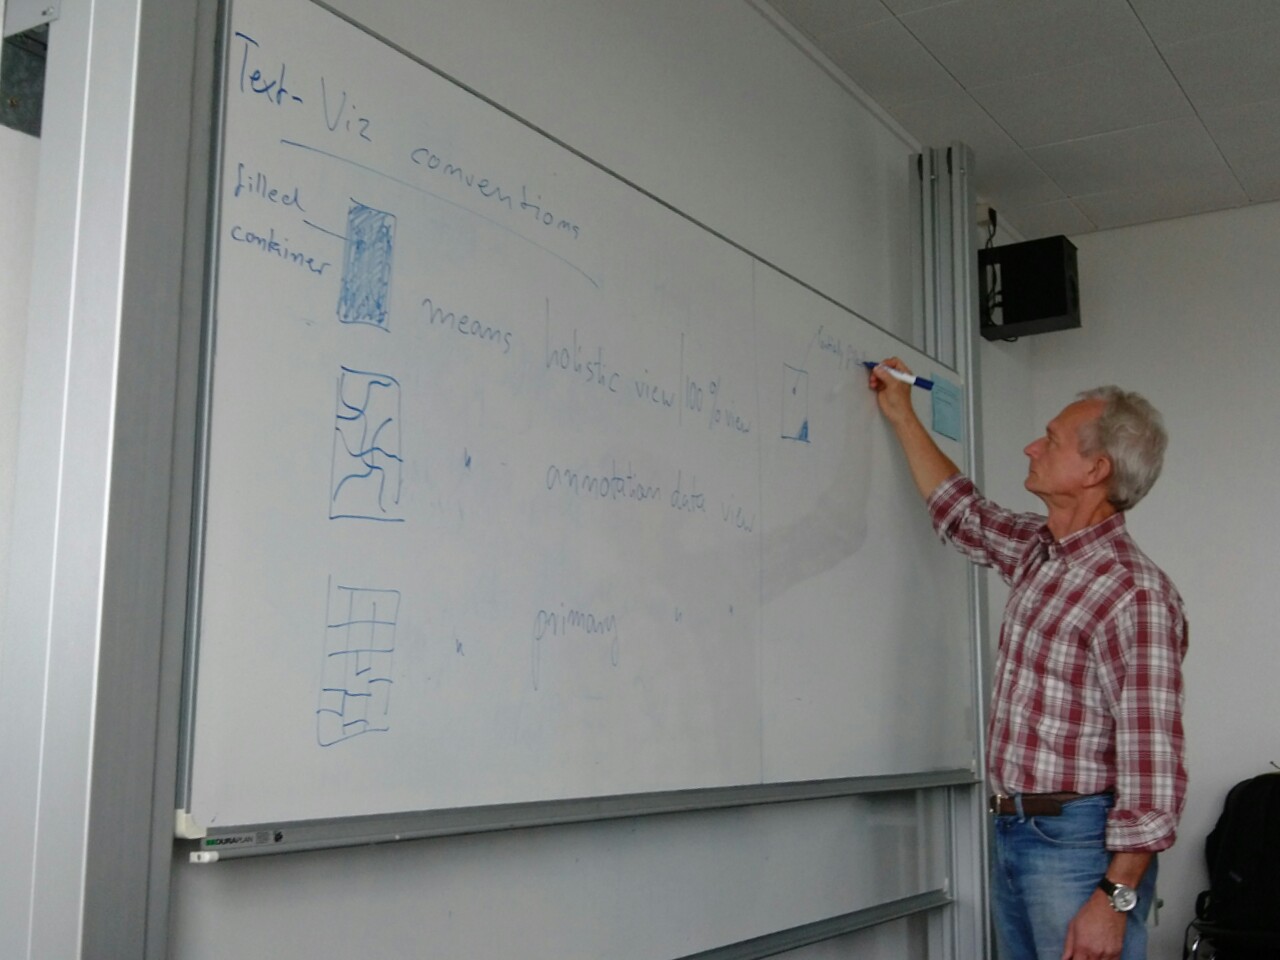 Text-Viz conventions
filled
container
means holistic view/100% view
" annotation data view
" primary " "
DURAPLAN